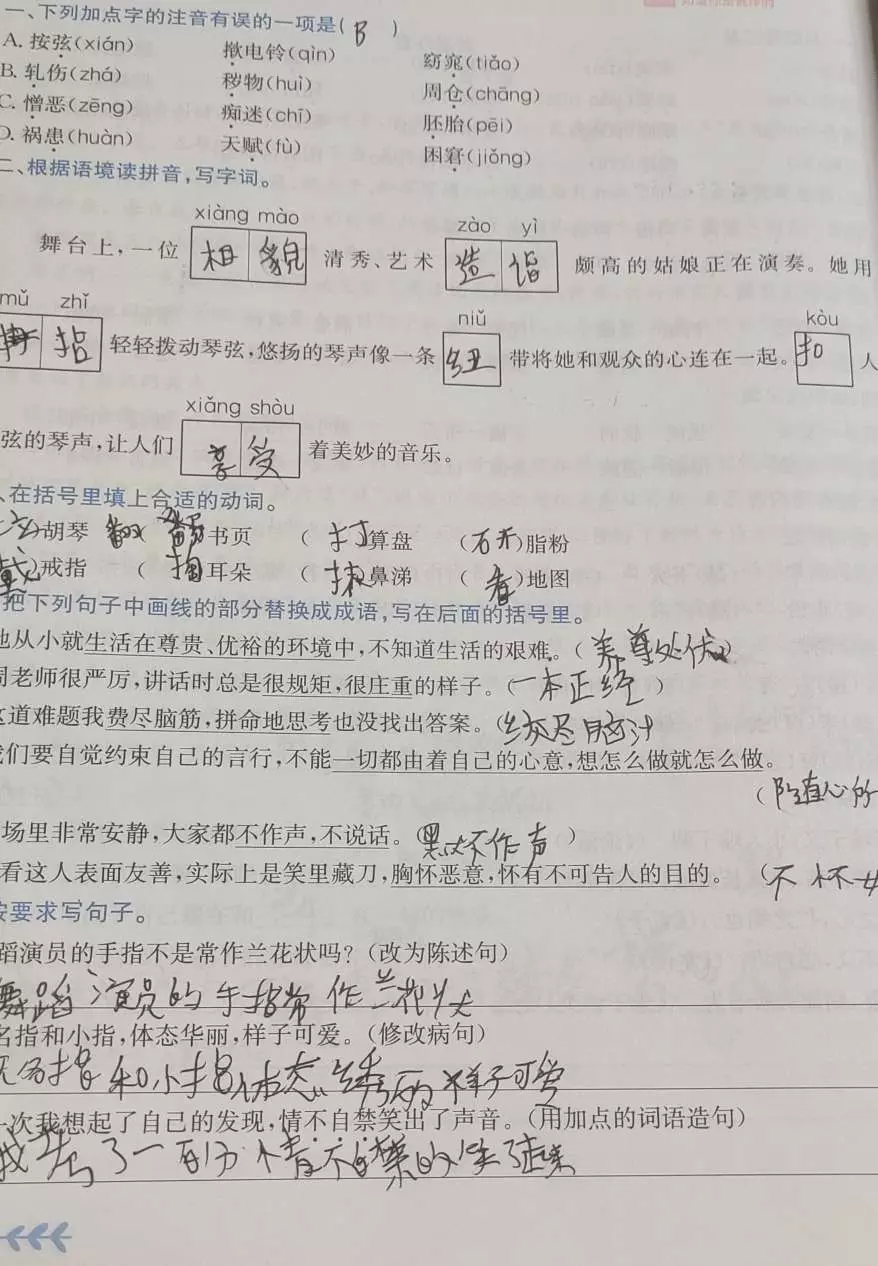 一、下列加点字的注音有误的一项是( B )
A. 按弦(xián) 揿电铃(qìn) 窈窕(tiǎo)
B. 轧伤(zhá) 秽物(huì) 周仓(chāng)
C. 憎恶(zēng) 痴迷(chī) 胚胎(pēi)
D. 祸患(huàn) 天赋(fù) 困窘(jiǒng)
二、根据语境读拼音,写字词。
xiàng mào zào yì
舞台上,一位 相貌 清秀、艺术 造诣 颇高的姑娘正在演奏。她用
mǔ zhǐ niǔ kòu
拇指 轻轻拨动琴弦,悠扬的琴声像一条 纽 带将她和观众的心连在一起。 扣 人
xiǎng shòu
弦的琴声,让人们 享受 着美妙的音乐。
、在括号里填上合适的动词。
)胡琴 ( 翻 书页 ( 打 )算盘 ( )脂粉
戴 )戒指 ( 掏 耳朵 ( 抹 )鼻涕 ( 看 )地图
把下列句子中画线的部分替换成成语,写在后面的括号里。
他从小就生活在尊贵、优裕的环境中,不知道生活的艰难。( 养尊处优 )
周老师很严厉,讲话时总是很规矩,很庄重的样子。( 一本正经 )
这道难题我费尽脑筋,拼命地思考也没找出答案。( 绞尽脑汁
我们要自觉约束自己的言行,不能一切都由着自己的心意,想怎么做就怎么做。
( 随心所
场里非常安静,大家都不作声,不说话。( 默不作声 )
看这人表面友善,实际上是笑里藏刀,胸怀恶意,怀有不可告人的目的。 ( 不怀
按要求写句子。
蹈演员的手指不是常作兰花状吗?(改为陈述句)
舞蹈演员的手指常作兰花状
名指和小指,体态华丽,样子可爱。(修改病句)
无名指和小指体态秀丽样子可爱
一次我想起了自己的发现,情不自禁笑出了声音。(用加点的词语造句)
我考了一百分情不自禁的笑了起来